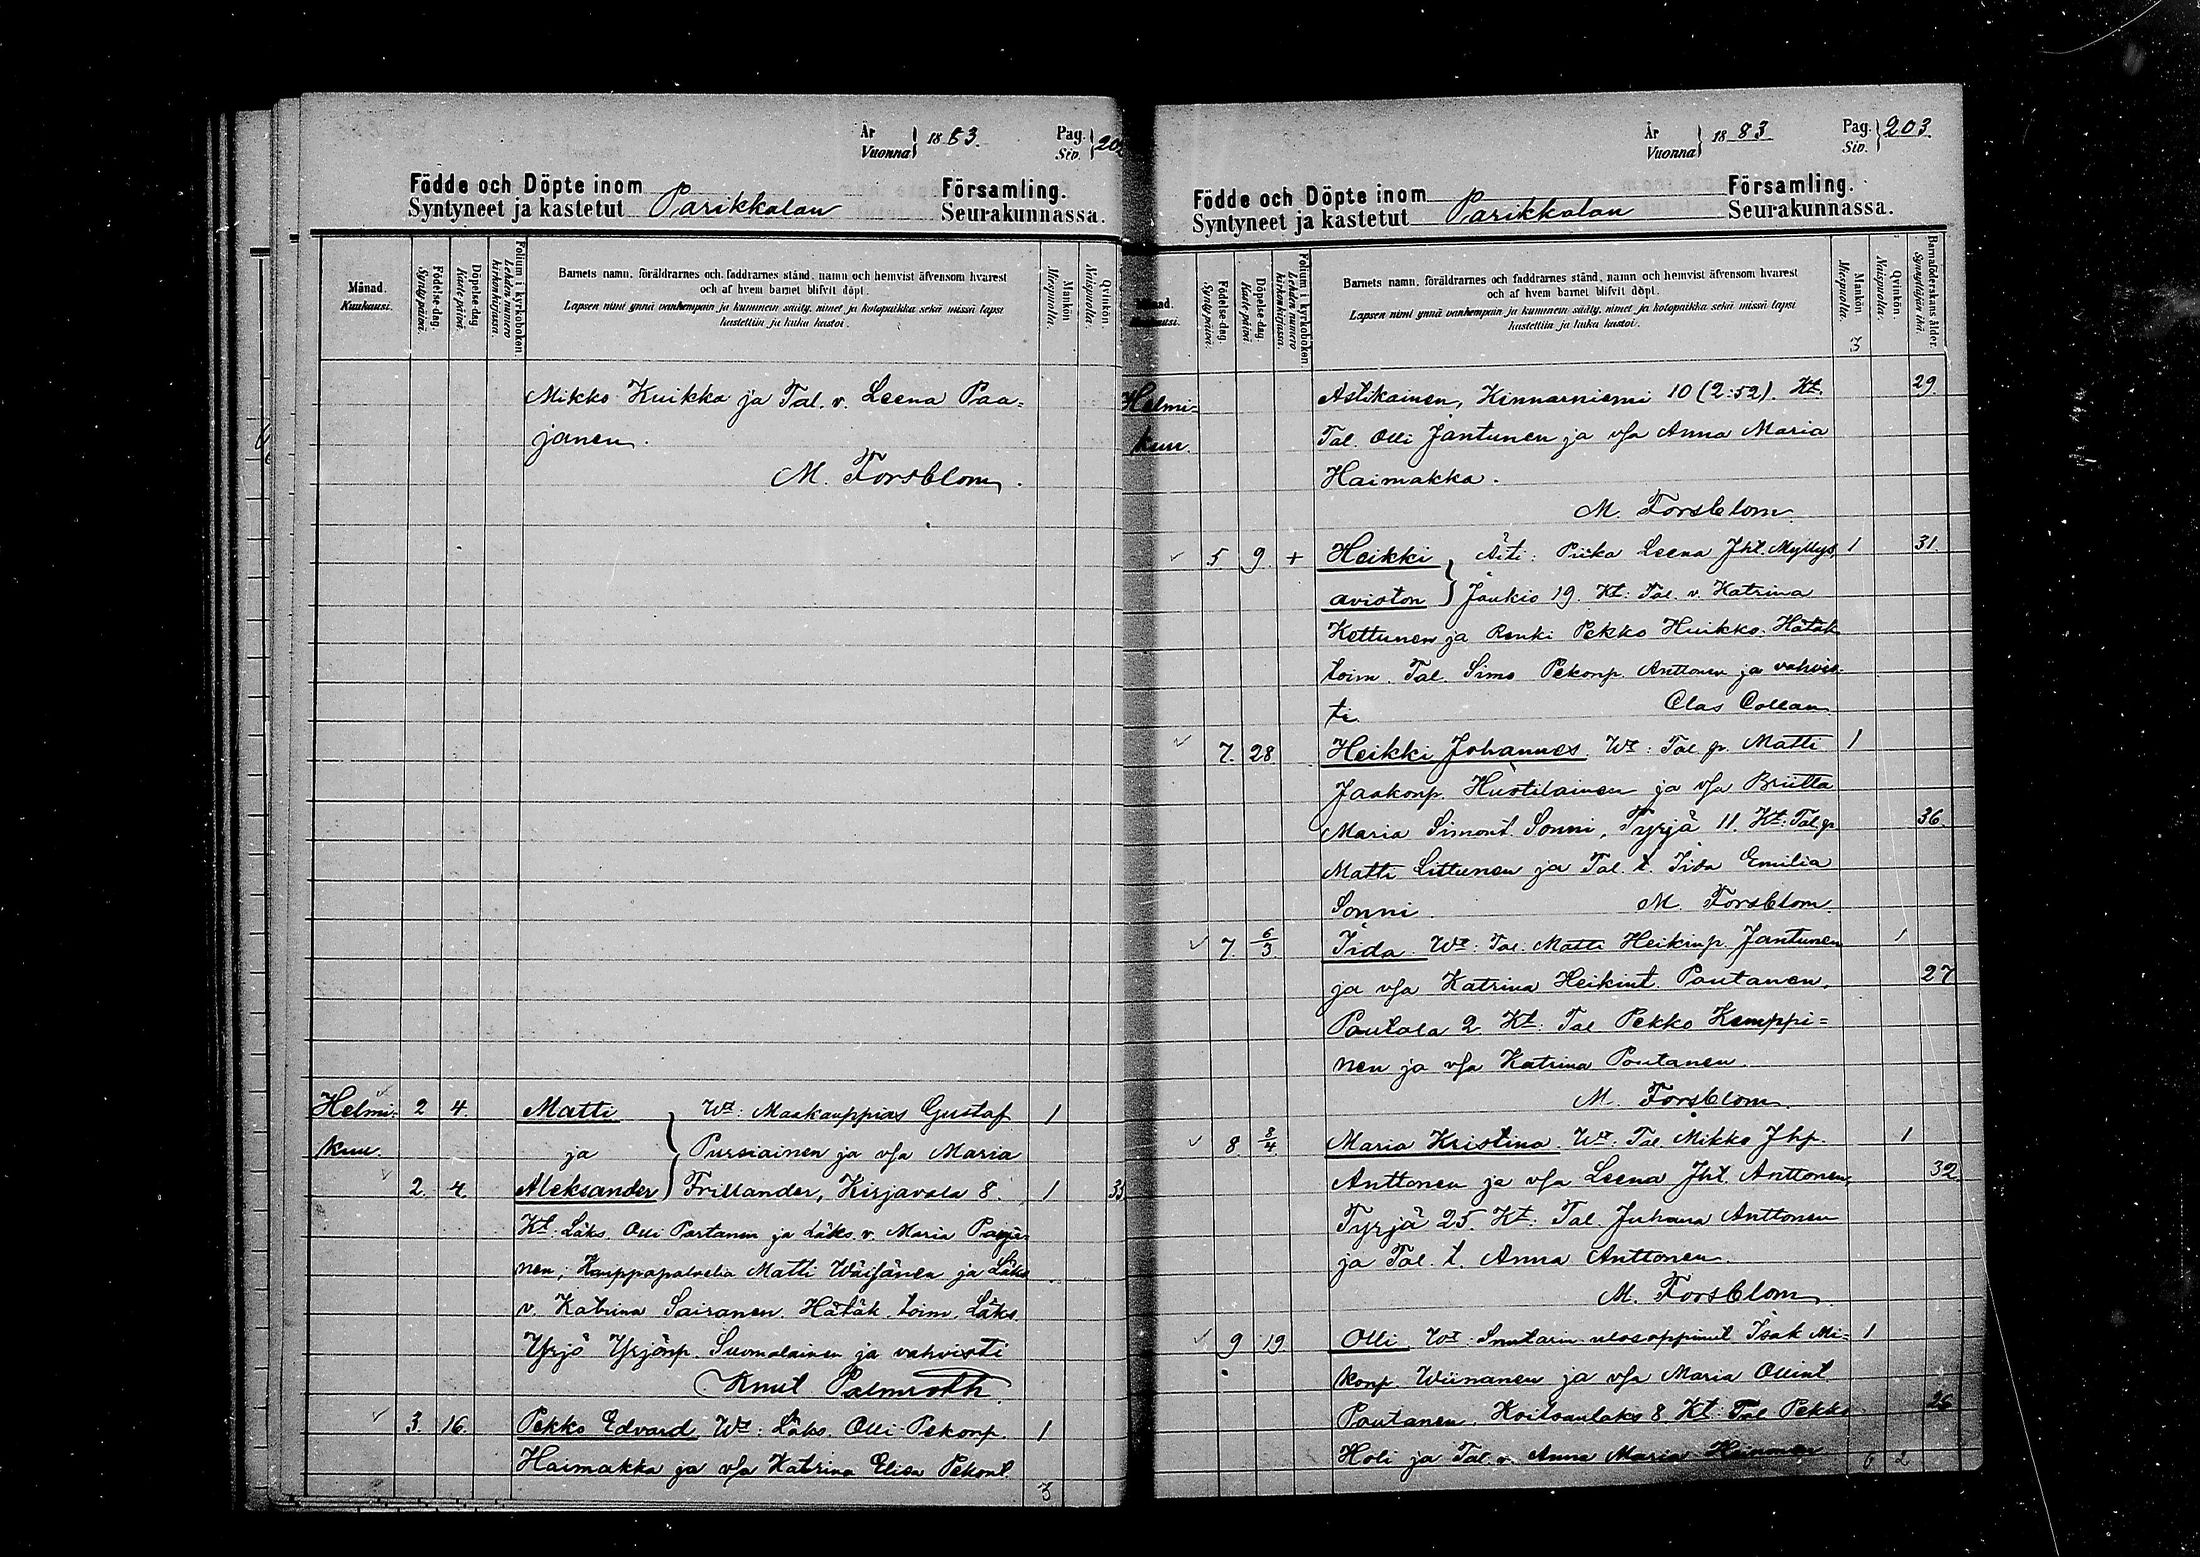 År
Vuonna } 1883.
Pag.
Siv. } 202
Födde och Döpte inom Församling.
Syntyneet ja kastetut Parikkalan Seurakunnassa.
Månad. Kuukausi.
Födelse-dag. Synty-päivä.
Döpelse-dag. Kaste-päivä.
Folium i kyrkoboken. Lehden numero kirkonkirjassa.
Barnets namn, föräldrarnes och faddrarnes stånd, namn och hemvist äfvensom hvarest
och af hvem barnet blifvit döpt.
Lapsen nimi ynnä vanhempain ja kummein sääty, nimet ja kotopaikka sekä missä lapsi
kastettiin ja kuka kastoi.
Mankön. Miespuolia.
Qvinkön. Naispuolia.
Mikko Kuikka ja Tal. v. Leena Paa=
janen.
M. Forsblom.
Helmi- 2 4. Matti Wt: Maakauppias Gustaf 1
kuu. ja Pursiainen ja vsa Maria
2. 4. Aleksander Frillander, Kirjavala 8. 1 35
Kt: Läks. Olli Partanen ja Läks. v. Maria
nen; Kauppapalvelia Matti Wäisänen ja Läks
v. Katrina Sairanen. Hätäk. toim. Läks.
Yrjö Yrjönp. Suomalainen ja vahvisti
Knut Palmroth.
3. 16. Pekko Edvard Wt: Läks. Olli Pekonp. 1
Haimakka ja vsa Katrina Elisa Pekont.
3
År
Vuonna } 1883.
Pag.
Siv. } 203.
Födde och Döpte inom Församling.
Syntyneet ja kastetut Parikkalan Seurakunnassa.
Månad. Kuukausi.
Födelse-dag. Synty-päivä.
Döpelse-dag. Kaste-päivä.
Folium i kyrkoboken. Lehden numero kirkonkirjassa.
Barnets namn, föräldrarnes och faddrarnes stånd, namn och hemvist äfvensom hvarest
och af hvem barnet blifvit döpt.
Lapsen nimi ynnä vanhempain ja kummein sääty, nimet ja kotopaikka sekä missä lapsi
kastettiin ja kuka kastoi.
Mankön. Miespuolia.
Qvinkön. Naispuolia.
Barnaföderskans ålder. Synnyttäjän ikä.
3
Helmi- Astikainen, Kinnarniemi 10 (2:52). Kt. 29.
kuu. Tal. Olli Jantunen ja vsa Anna Maria
Haimakka.
M. Forsblom.
5 9. + Heikki } Äiti: Piika Leena Jht. Myllys, 1 31.
avioton } Jaukio 19. Kt: Tal. v. Katrina
Kettunen ja Renki Pekko Huikko. Hätäk.
toim. Tal. Simo Pekonp. Anttonen ja vahvis-
ti. Clas Collan.
7. 28. Heikki Johannes. Wt: Tal. p. Matti 1
Jaakonp. Huotilainen ja vsa Briitta
Maria Simont. Sonni, Tyrjä 11. Kt: Tal. p. 36.
Matti Littunen ja Tal. t. Iida Emilia
Sonni. M. Forsblom.
7. 6/3. Iida. Wt: Tal. Matti Heikinp. Jantunen 1
ja vsa Katrina Heikint. Poutanen, 27
Poutala 2. Kt: Tal. Pekko Kemppi=
nen ja vsa Katrina Poutanen.
M. Forsblom.
8 8/4. Maria Kristina. Wt: Tal. Mikko Jhp. 1
Anttonen ja vsa Leena Jht. Anttonen, 32
Tyrjä 25. Kt: Tal. Juhana Anttonen
ja Tal. t. Anna Anttonen.
M. Forsblom.
9 19 Olli. Wt: Suutarin ulosoppinut Isak Mi= 1
konp. Wiinanen ja vsa Maria Ollint.
Poutanen. Koitsanlaks 8. Kt: Tal. Pekko 26
Holi ja Tal. v. Anna Maria
6 2